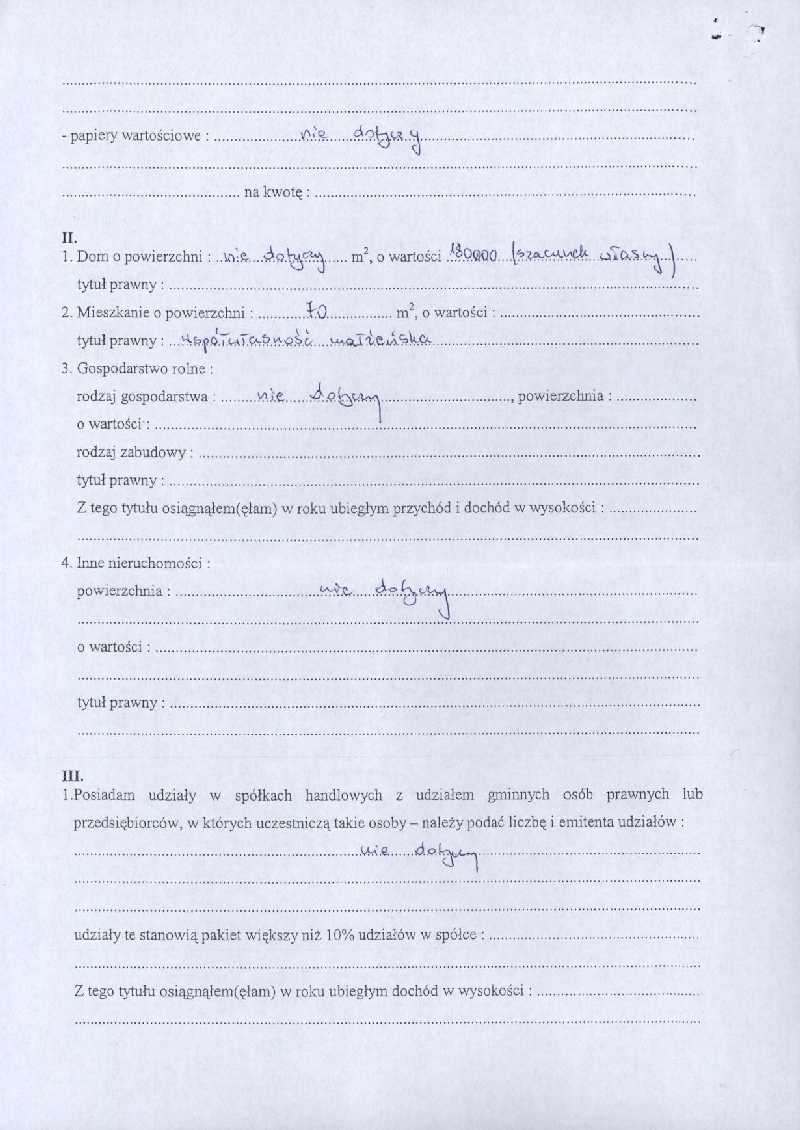 - papiery wartościowe : nie dotyczy
na kwotę :
II.
1. Dom o powierzchni : nie dotyczy m², o wartości 180000 (szacunek własny)
tytuł prawny :
2. Mieszkanie o powierzchni : 70 m², o wartości :
tytuł prawny : współwłasność małżeńska
3. Gospodarstwo rolne :
rodzaj gospodarstwa : nie dotyczy, powierzchnia :
o wartości :
rodzaj zabudowy :
tytuł prawny :
Z tego tytułu osiągnąłem(ęłam) w roku ubiegłym przychód i dochód w wysokości :
4. Inne nieruchomości :
powierzchnia : nie dotyczy
o wartości :
tytuł prawny :
III.
1.Posiadam udziały w spółkach handlowych z udziałem gminnych osób prawnych lub
przedsiębiorców, w których uczestniczą takie osoby – należy podać liczbę i emitenta udziałów :
nie dotyczy
udziały te stanowią pakiet większy niż 10% udziałów w spółce :
Z tego tytułu osiągnąłem(ęłam) w roku ubiegłym dochód w wysokości :